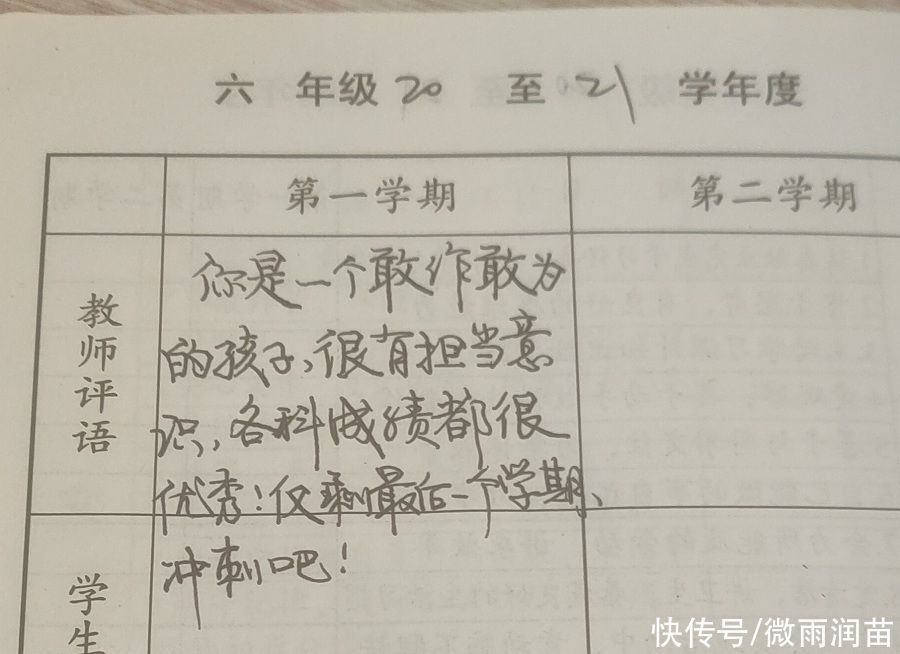 六 年级 20 至 021 学年度
第一学期 第二学期
教师评语
你是一个敢作敢为
的孩子、很有担当意
识,各科成绩都很
优秀!仅剩最后一个学期、
冲刺吧!
学生
快传号/微雨润苗